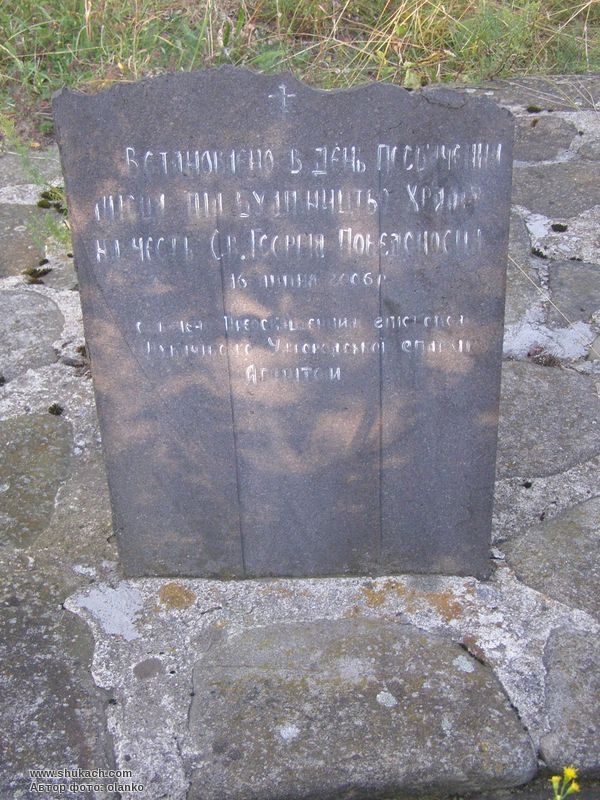 ВСТАНОВЛЕНО В ДЕНЬ ПОСВЯЧЕННЯ
МІСЦЯ ПІД БУДІВНИЦТВО ХРАМУ
НА ЧЕСТЬ СВ. ГЕОРГІЯ ПОБЕДОНОСЦЯ
16 2006р
ЄПИСКОПА
УЖГОРОДСЬКОЇ
АГАПІТОМ
www.shukach.com
Автор фото: olanko